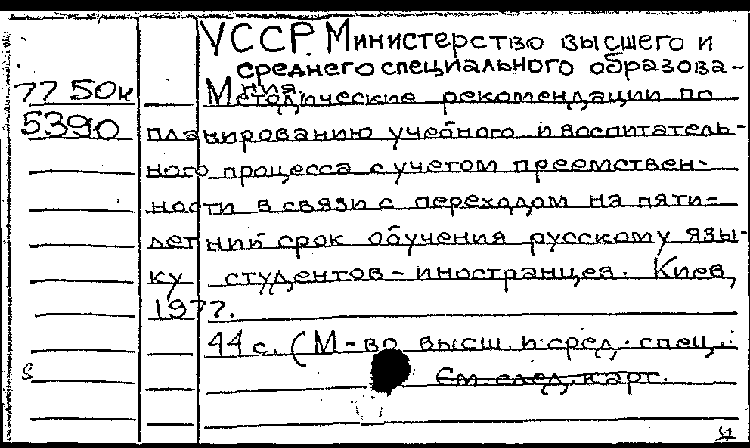 УССР. Министерство высшего и
среднего специального образова-
ния.
77 50к Методические рекомендации по
5390 планированию учебного и воспитатель-
ного процесса с учетом преемствен-
ности в связи с переходом на пяти-
летний срок обучения русскому язы-
ку студентов-иностранцев. Киев,
1977.
44 с. (М-во высш. и сред. спец.
См след. карт.